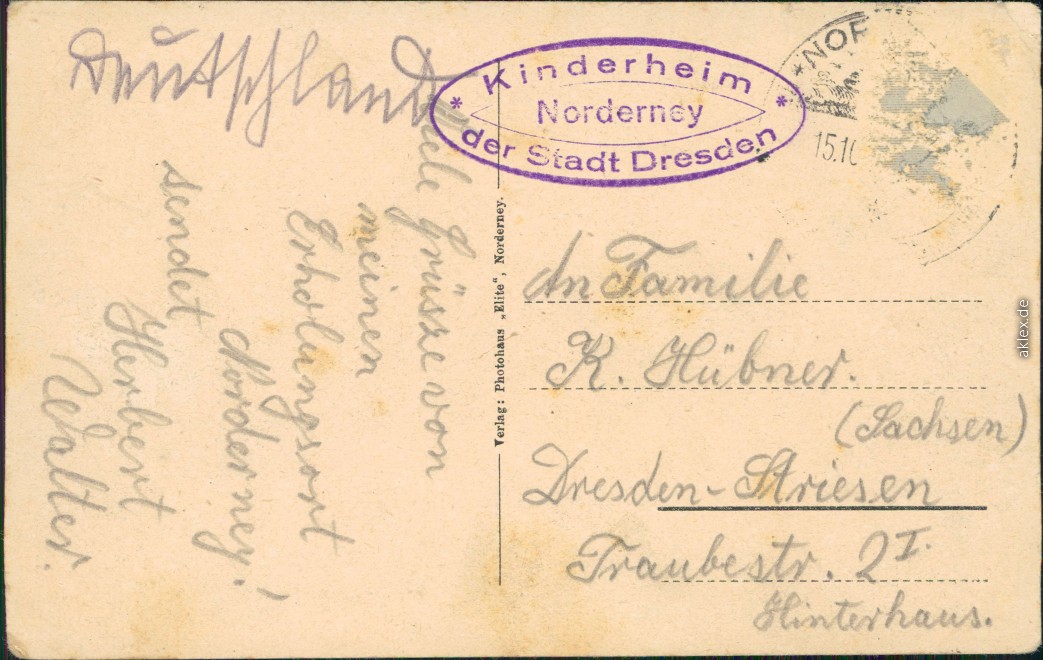 Deutschland
Viele Grüsze von
meinen
Erholungsort
Norderney!
sendet
Herbert
Walter.
* Kinderheim *
Norderney
der Stadt Dresden
*NOR
15.10
Verlag: Photohaus „Elite“, Norderney.
An Familie
K. Hübner.
(Sachsen)
Dresden-Striesen
Traubestr. 2 I.
Hinterhaus.
aklex.de